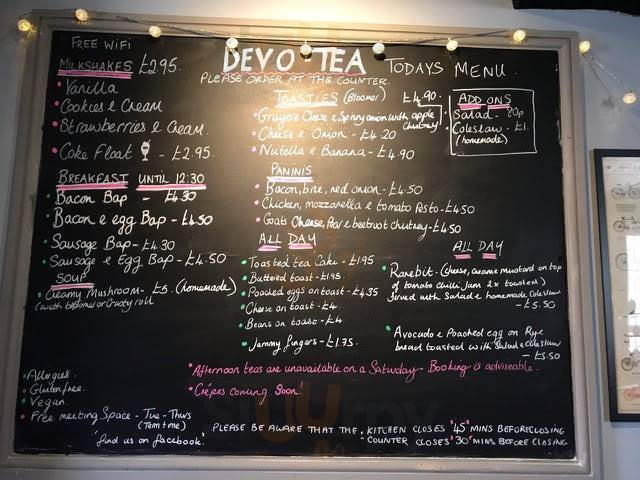 FREE WIFI
DEVO TEA
PLEASE ORDER AT THE COUNTER.
TODAYS MENU.
MILKSHAKES £2.95.
Vanilla
Cookies & Cream
Strawberries & Cream.
Coke Float - £2.95.
BREAKFAST UNTIL 12:30
Bacon Bap - £4.30
Bacon & egg Bap - £4.50
Sausage Bap - £4.30
Sausage & Egg Bap - £4.50
SOUP
Creamy Mushroom - £5. (homemade)
(with bloomer or Crusty roll
TOASTIES (Bloomer) £4.90.
Gruyere Cheese & Spring onion with apple
chutney
Cheese & Onion - £4.20
Nutella & Banana - £4.90
PANINIS
Bacon, brie, red onion - £4.50
Chicken, mozzarella & tomato Pesto - £4.50
Goats Cheese, Pear & beetroot Chutney - £4.50
ADD ONS
Salad - 80p
Coleslaw - £1.
(homemade)
ALL DAY
Toasted tea Cake - £1.95
Buttered toast - £1.95.
Poached eggs on toast - £4.35
Cheese on toast - £4
Beans on toast - £4
Jammy fingers - £1.75.
ALL DAY
Rarebit - (Cheese, creame mustard on top
of tomato chilli Jam 2 x toasted)
Served with Salad & homemade Coleslaw
- £5.50
Avocado & Poached egg on Rye
bread toasted with Salad & coleslaw
- £5.50
Afternoon teas are unavailable on a Saturday - Booking is adviseable.
Crêpes coming Soon!
Allergies.
Gluten free.
Vegan.
Free meeting Space - Tue - Thurs
'find us on facebook'
PLEASE BE AWARE THAT THE. KITCHEN CLOSES '45' MINS BEFORE CLOSING
- COUNTER CLOSES '30' MINS BEFORE CLOSING